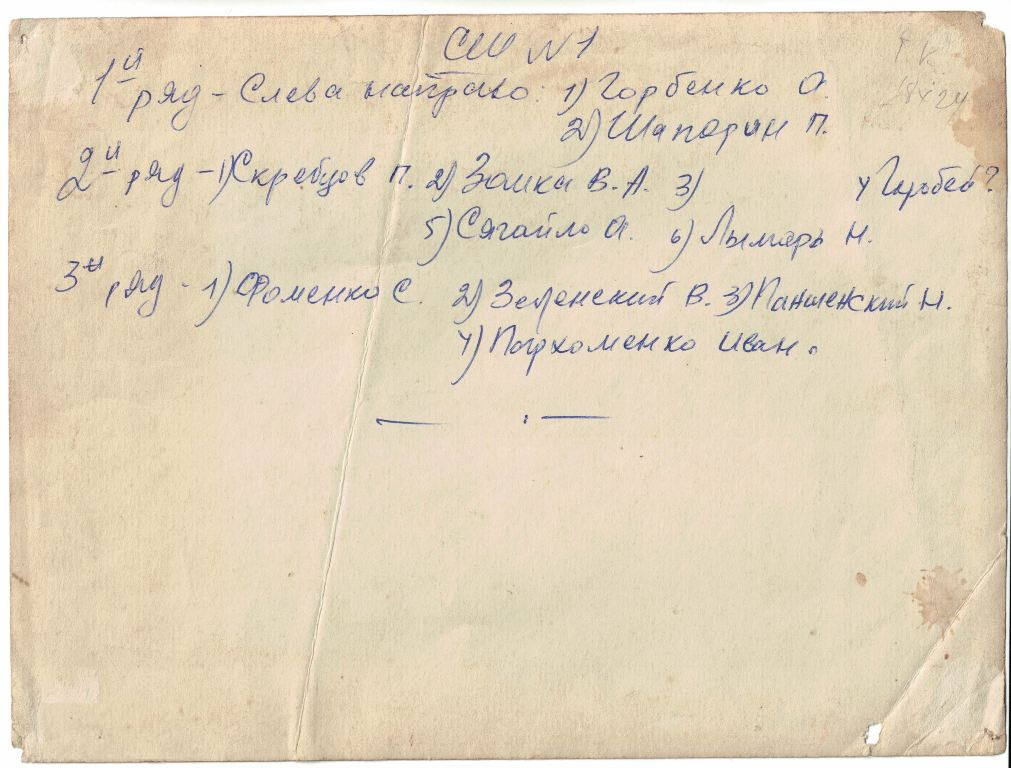 СШ №1
1й ряд - Слева направо: 1) Горбенко А.
2) Шапорин П.
2й ряд - 1) Скребцов П. 2) Заика В.А. 3) 4 Горобей?
5) Сягайло А. 6) Лымарь Н.
3й ряд - 1) Фоменко С. 2) Зеленский В. 3) Паншенский Н.
4) Пархоменко Иван.